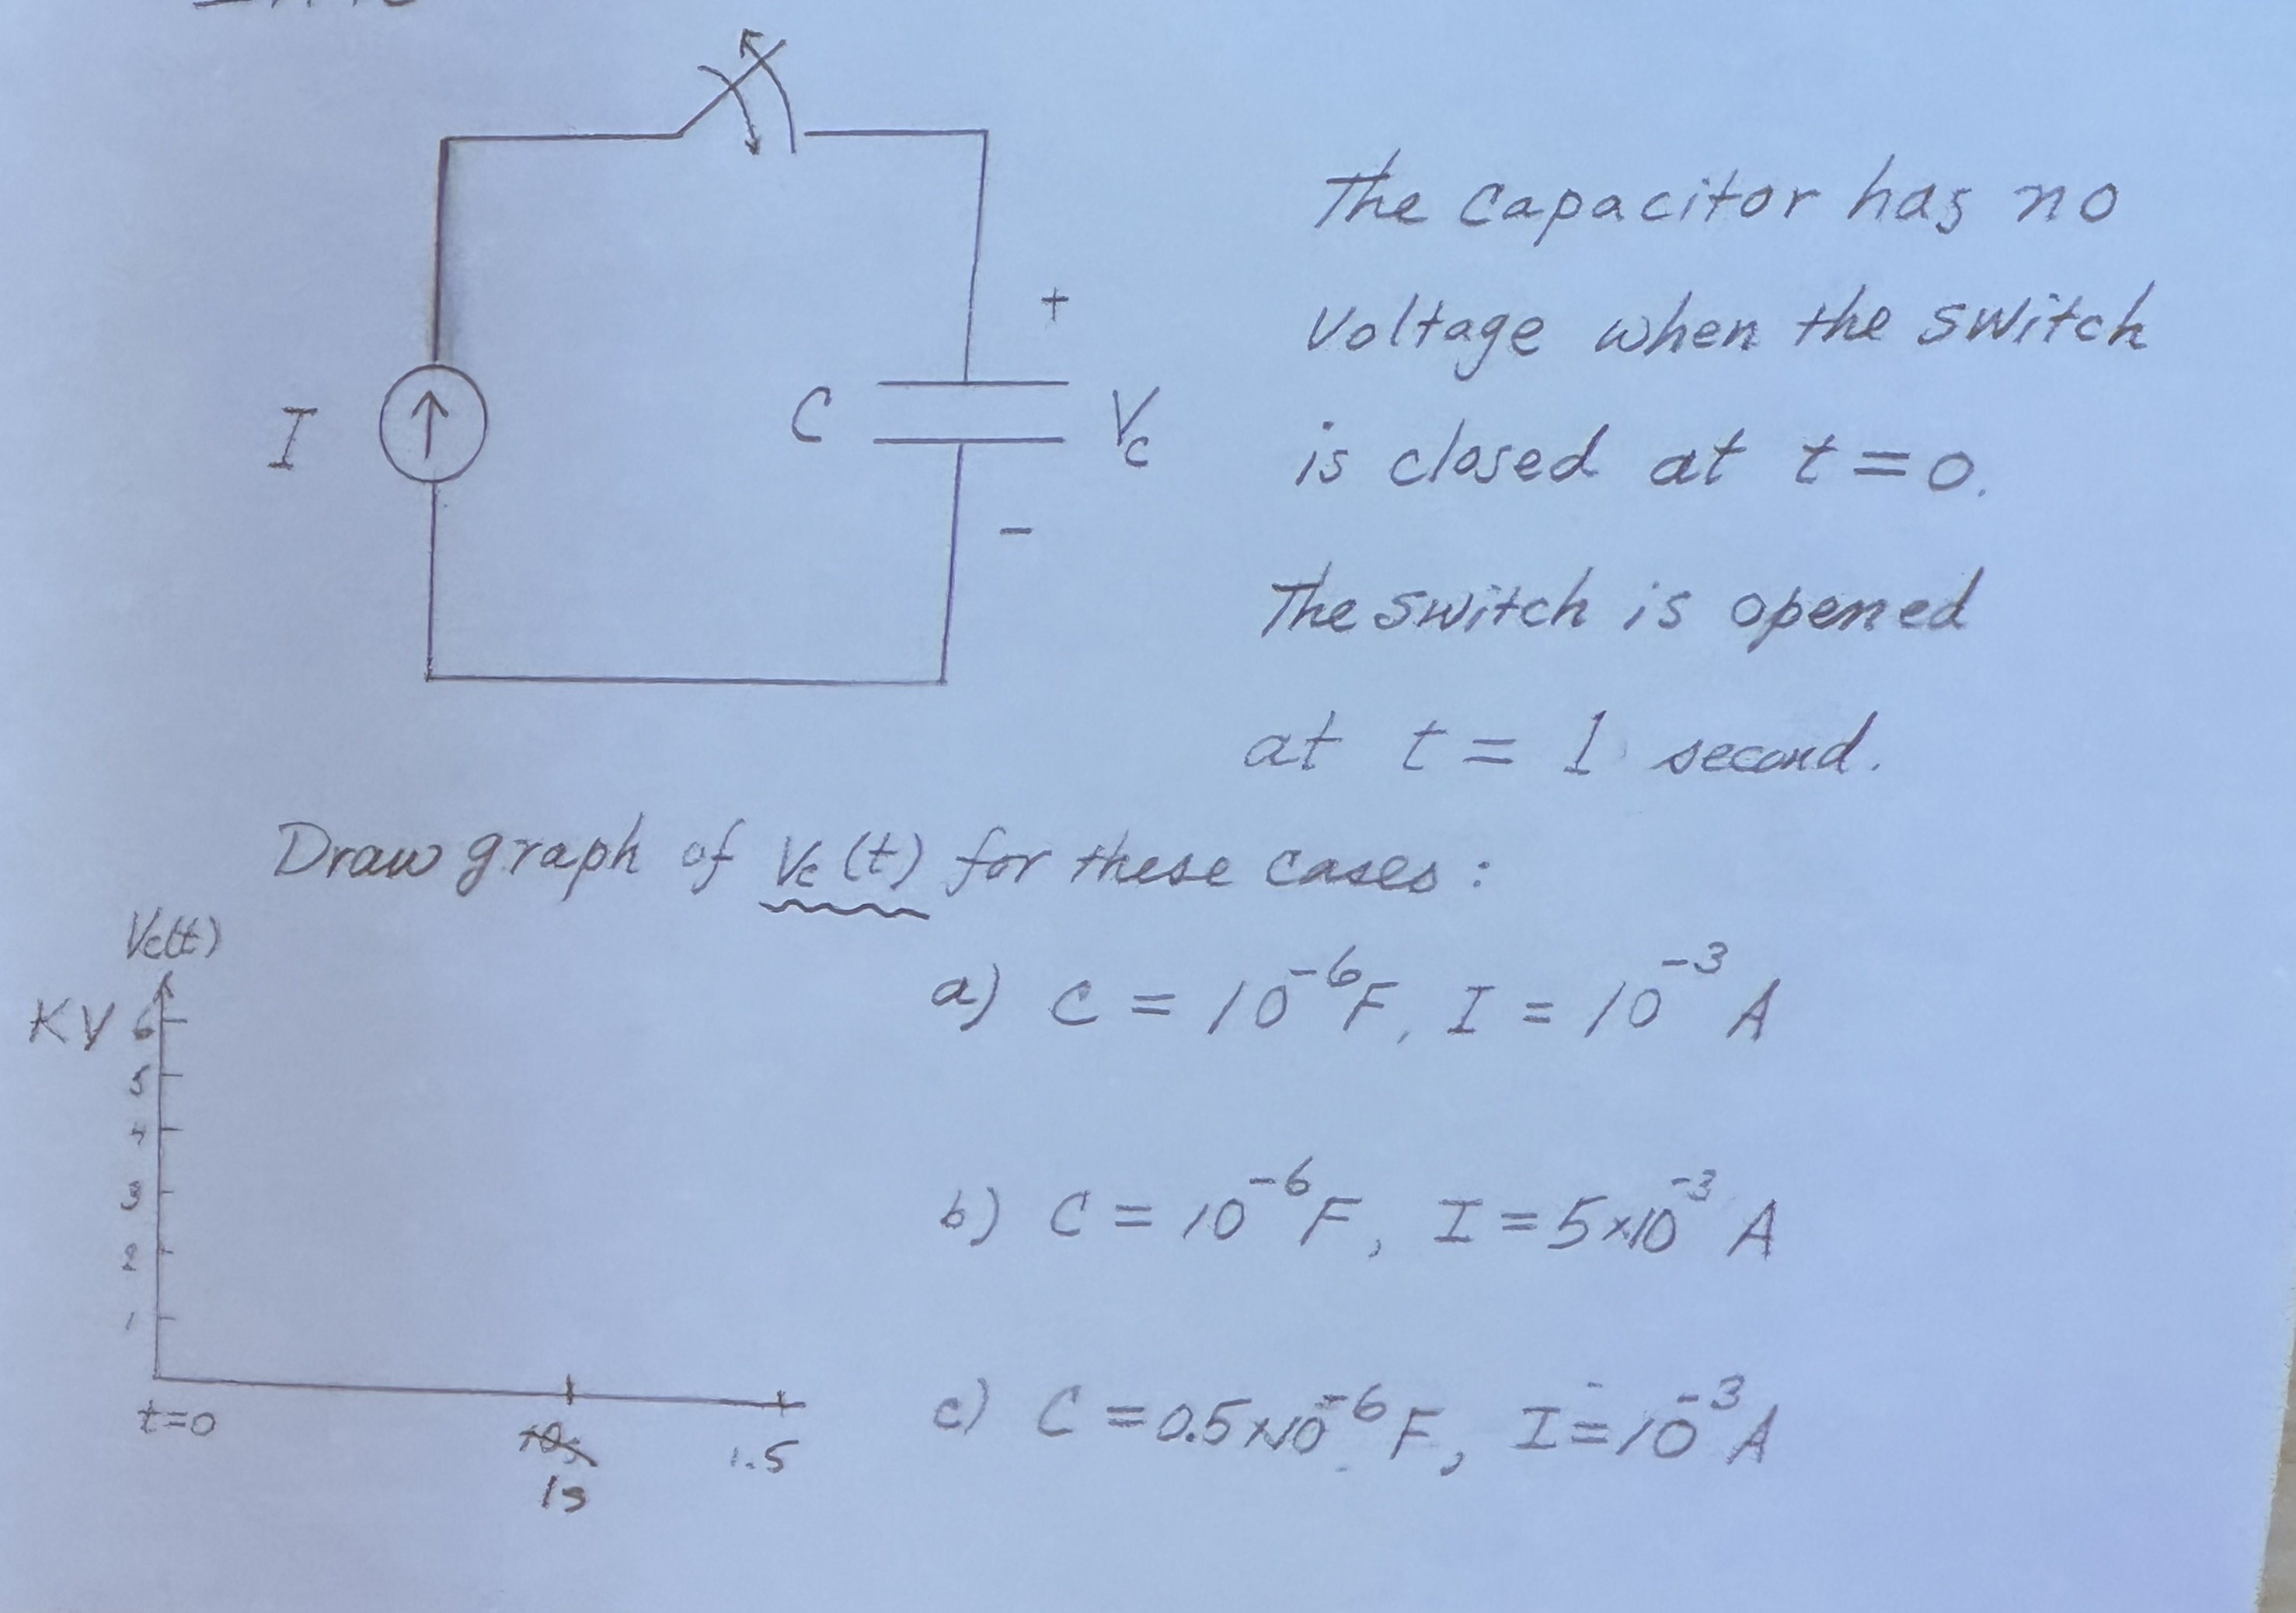 The capacitor has no
voltage when the switch
is closed at t = 0.
The switch is opened
at t = 1 second.
+
I
C
Vc
−
Draw graph of Vc(t) for these cases:
Vc(t)
KV 6
5
4
3
2
1
t=0
1s
1.5
a) C = 10⁻⁶F, I = 10⁻³ A
b) C = 10⁻⁶F, I = 5×10⁻³ A
c) C = 0.5×10⁻⁶F, I = 10⁻³A